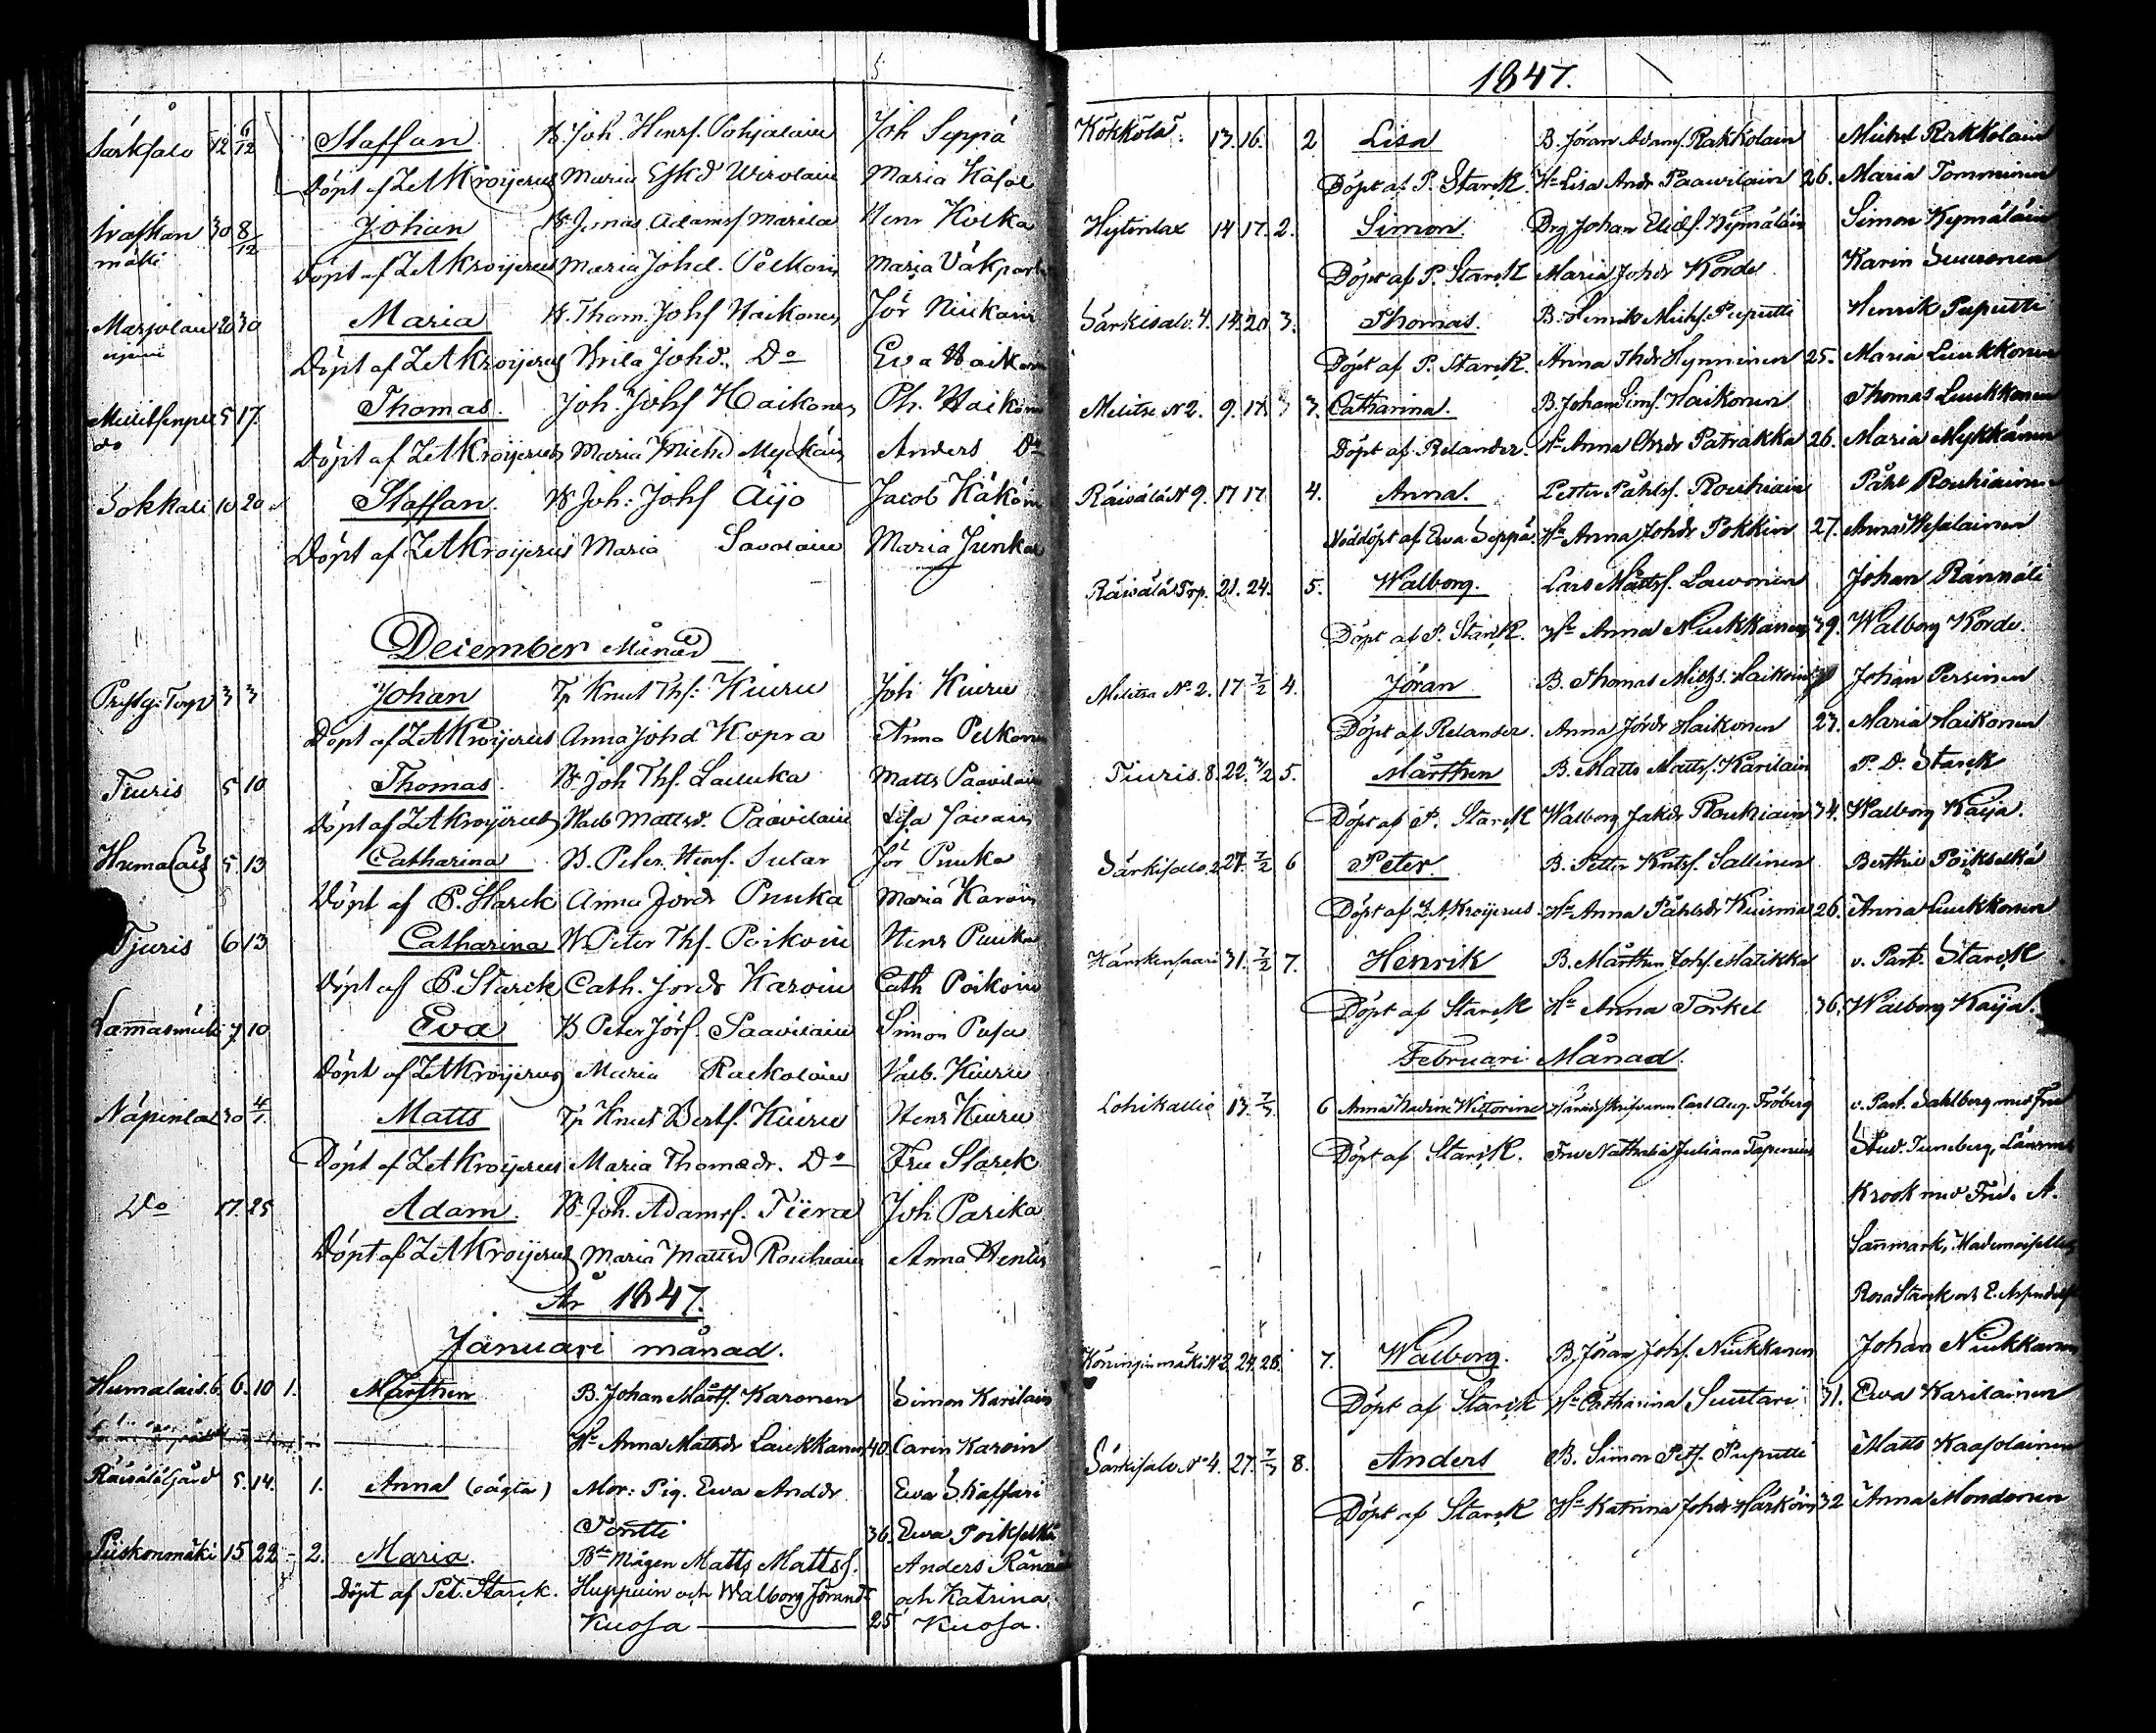 Särksalo 12 6/12 Staffan B. Joh. Henrs. Pohjalain Joh Seppä
Döpt af Z et A Kroijerus Maria Eskd Wirolain Maria Käsäl
Ivaskan 30 8/12 Johan B. Jonas Adamss Marila Henr Kolka
mäki Döpt af Z et A Kroijerus Maria Johd. Pelkoin Maria
20 30 Maria B. Thom. Johs Naikonen Jör Niukain
Döpt af Z et A Kroijerus Johd. Do Eva
5 17. Thomas. Joh. Johs Haikonen Th. Haikone
do Döpt af Z et A Kroijerus Maria Michd Myckäin Anders Do
Sokkali 10 20 Staffan. B Joh: Johs Äijö Jacob Käköin
Döpt af Z et A Kroijerus Maria Savolain Maria Junkai
December Månad
Prestg: Torp 3 3 Johan Tp Knut Ths: Kiuru Joh Kiuru
Döpt af Z et A Kroijerus Anna Johd Kopra Anna Pelkonen
Tiuris 5 10 Thomas. B. Joh Ths. Laituka Matts Paavilain
Döpt af Z et A Kroijerus Walb Mattsd. Paavilain Lisa Javain
Humalais 5 13 Catharina B. Peter Henrs. Sutar Jör Pnuka
Döpt af P. Starck Anna Jördr Pnuka Maria Karoin
Tjuris 6 13 Catharina B. Peter Ths. Poikoin Henr Pnuka
Döpt af P. Starck Cath. Jördr Karoin Cath Poikoin
Lamasmäki 7 10 Eva B Peter Jörs. Paavilain Simon Pusa
Döpt af Z et A Kroijerus Maria Rackolain Valb. Kiuru
Näpinlax 30 4/1 Matts Tp Knut Berts. Kiuru Henr Kiuru
Döpt af Z et A Kroijerus Maria Thomædr. Do Fru Starck
Do 17. 25 Adam. B. Joh. Adamss. Tiira Joh Parika
Döpt af Z et A Kroijerus Maria Mattsd Rouhiain Anna
År 1847.
Januari månad.
Humalais. 6. 6. 10 1. Mårthen B. Johan Mårts. Karonen Simon Karilain
Hu Anna Mattsdr Laukkanen 40. Caren Karoin
Räisälä Gård 5. 14. 1. Anna (oägta) Mor: Pig. Ewa Andsdr Ewa Skaffari
Pontti 36. Ewa Poikselkä
Piiskonmäki 15 22 - 2. Maria. Bde Mågen Matts Mattss. Anders Ränn
Döpt af Pet. Starck. Huppuin och Walborg Jöransdr och Katrina
Kuosa 25 Kuosa.
1847.
Kökkölä. 13. 16. 2 Lisa B. Jöran Adams. Rakkolain Michel Rakkolain
Döpt af P. Starck. Hu Lisa Andr Paavilain 26. Maria Tomminen
Hytinlax 14 17. 2. Simon. Drg Johan Elids. Kymäläin Simon Kymäläin
Döpt af P. Starck Maria Johdr Kordi Karin Suuronen
Särkisalo. 4. 14. 20 3. Thomas. B. Henrik Michs. Puputti Henrik Puputti
Döpt af P. Starck. Anna Thdr Hynninen 25. Maria Luukkonen
Melitse N 2. 9. 17. 3. Catharina. B. Johan Sims. Haikonen Thomas Luukkonen
Döpt af Relander. Hu Anna Chrdr Patrakka 26. Maria Mykkänen
Räisälä N 9. 17 17 4. Anna. Petter Påhls. Rouhiain Påhl Rouhiainen
Nöddöpt af Ewa Seppä. Hu Anna Johdr Pokkin 27. Anna Wesalainen
Räisälä Trp. 21. 24. 5. Walborg. Lars Mårts. Lavonen Johan Rännäli
Döpt af P. Starck. Hu Anna Niukkanen 39. Walborg Kordi.
Melitsa No 2. 17 7/2 4. Jöran B. Thomas Michs. Johan Persinen
Döpt af Relander. Anna Jördr Haikonen 23. Maria Haikonen
Tiuris. 8. 22. 7/2 5. Mårthen B. Matts Matts. Karilain P. D. Starck
Döpt af P. Starck Walborg Jakdr Rouhiain 34. Walborg Kaija.
Särkisalo. 2 27. 7/2 6 Peter. B. Petter Knts. Sallinen Berthil Poikselkä
Döpt af Z. A Kroijerus. Hu Anna Påhlsdr Kuisma 26. Anna Luukkonen
Härskensaari 31. 7/2 7. Henrik B. Mårthen Johs. Matikka v. Past. Starck
Döpt af Starck Hu Anna Torkel 36. Walborg Kaija.
Februari Månad.
Lohikallio 13. 7/3. 6 Anna Nadine Wictorine Häradsskrifvaren Carl Aug. Fröberg v. Past. Sahlberg med Fru
Döpt af Starck. Fru Nathalia Juliana Tapenius Stud. Tuneberg,
Krook med Fru. A.
Sanmark, Mademoiselles
Rosa Starck och E.
Könninginmäki N 2 24. 28. 7. Walborg. B. Jöran Johs. Niukkanen Johan Niukkanen
Döpt af Starck Hu Catharina Suutari 31. Ewa Karilainen
Särkisalo No 4. 27. 7/3 8. Anders B. Simon Pets. Puputti Matts Kaasolainen
Döpt af Starck Hu Katrina Johdr Härköin 32 Anna Mondonen